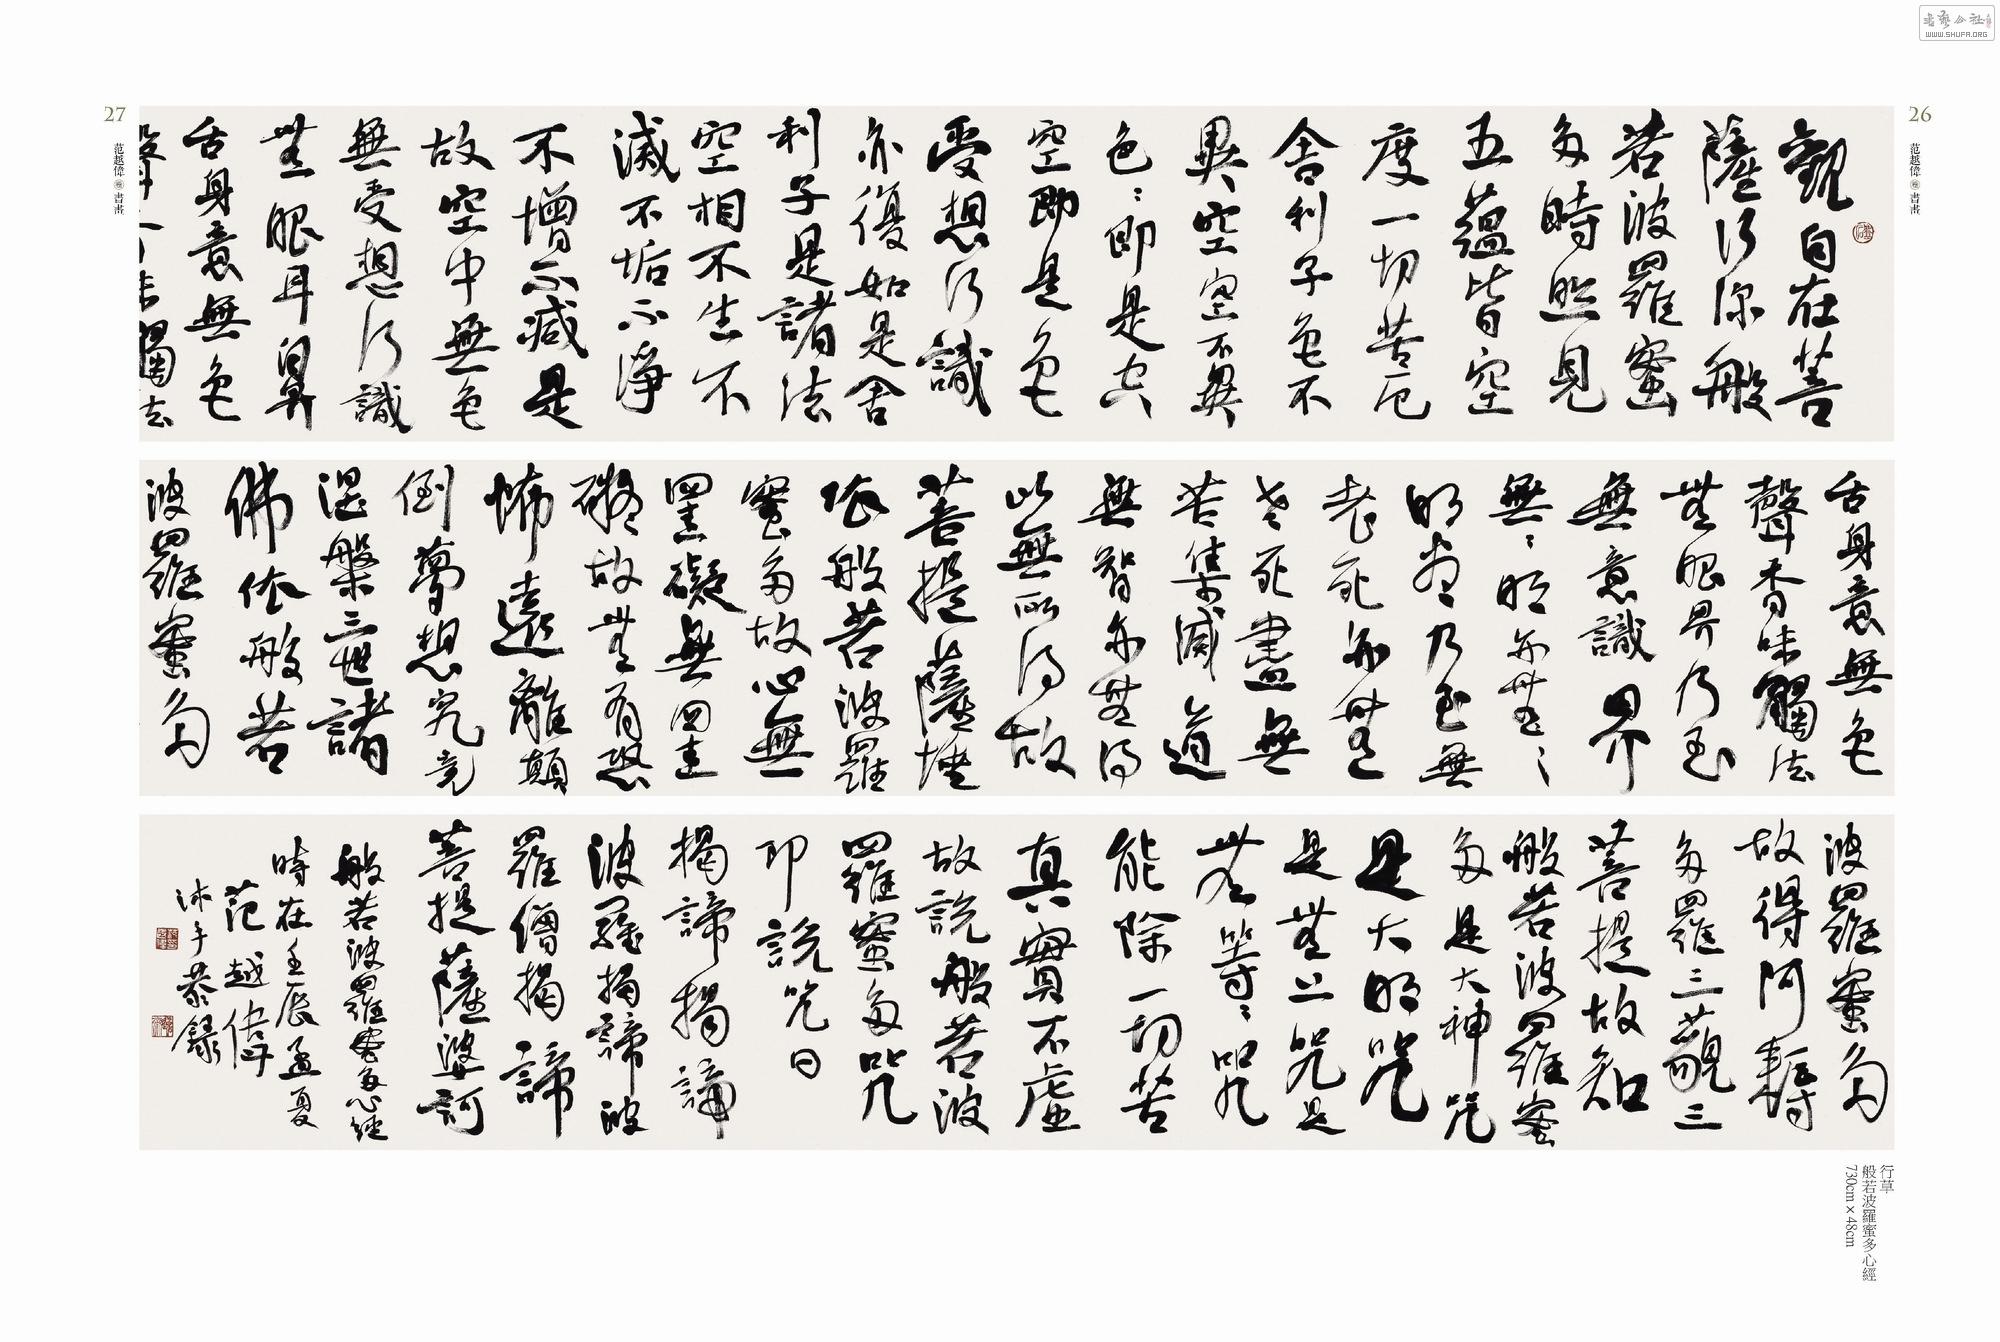 書藝公社
WWW.SHUFA.ORG
26
范越偉 書畫
27
范越偉 書畫
觀自在菩
薩行深般
若波羅蜜
多時照見
五蘊皆空
度一切苦厄
舍利子色不
異空空不異
色〻即是空
空即是色
受想行識
亦復如是舍
利子是諸法
空相不生不
滅不垢不淨
不增不減是
故空中無色
無受想行識
無眼耳鼻
舌身意無色
聲香味觸法
舌身意無色
聲香味觸法
無眼界乃至
無意識界
無〻明亦無〻
明盡乃至無
老死亦無
老死盡無
苦集滅道
無智亦無得
以無所得故
菩提薩埵
依般若波羅
蜜多故心無
罣礙無罣
礙故無有恐
怖遠離顛
倒夢想究竟
涅槃三世諸
佛依般若
波羅蜜多
波羅蜜多
故得阿耨
多羅三藐三
菩提故知
般若波羅蜜
多是大神咒
是大明咒
是無上咒是
無等〻咒
能除一切苦
真實不虛
故說般若波
羅蜜多咒
即說咒曰
揭諦揭諦
波羅揭諦波
羅僧揭諦
菩提薩婆訶
般若波羅蜜多心經
時在壬辰孟夏
范越偉
沐手恭錄
行草
般若波羅蜜多心經
730cm×48cm